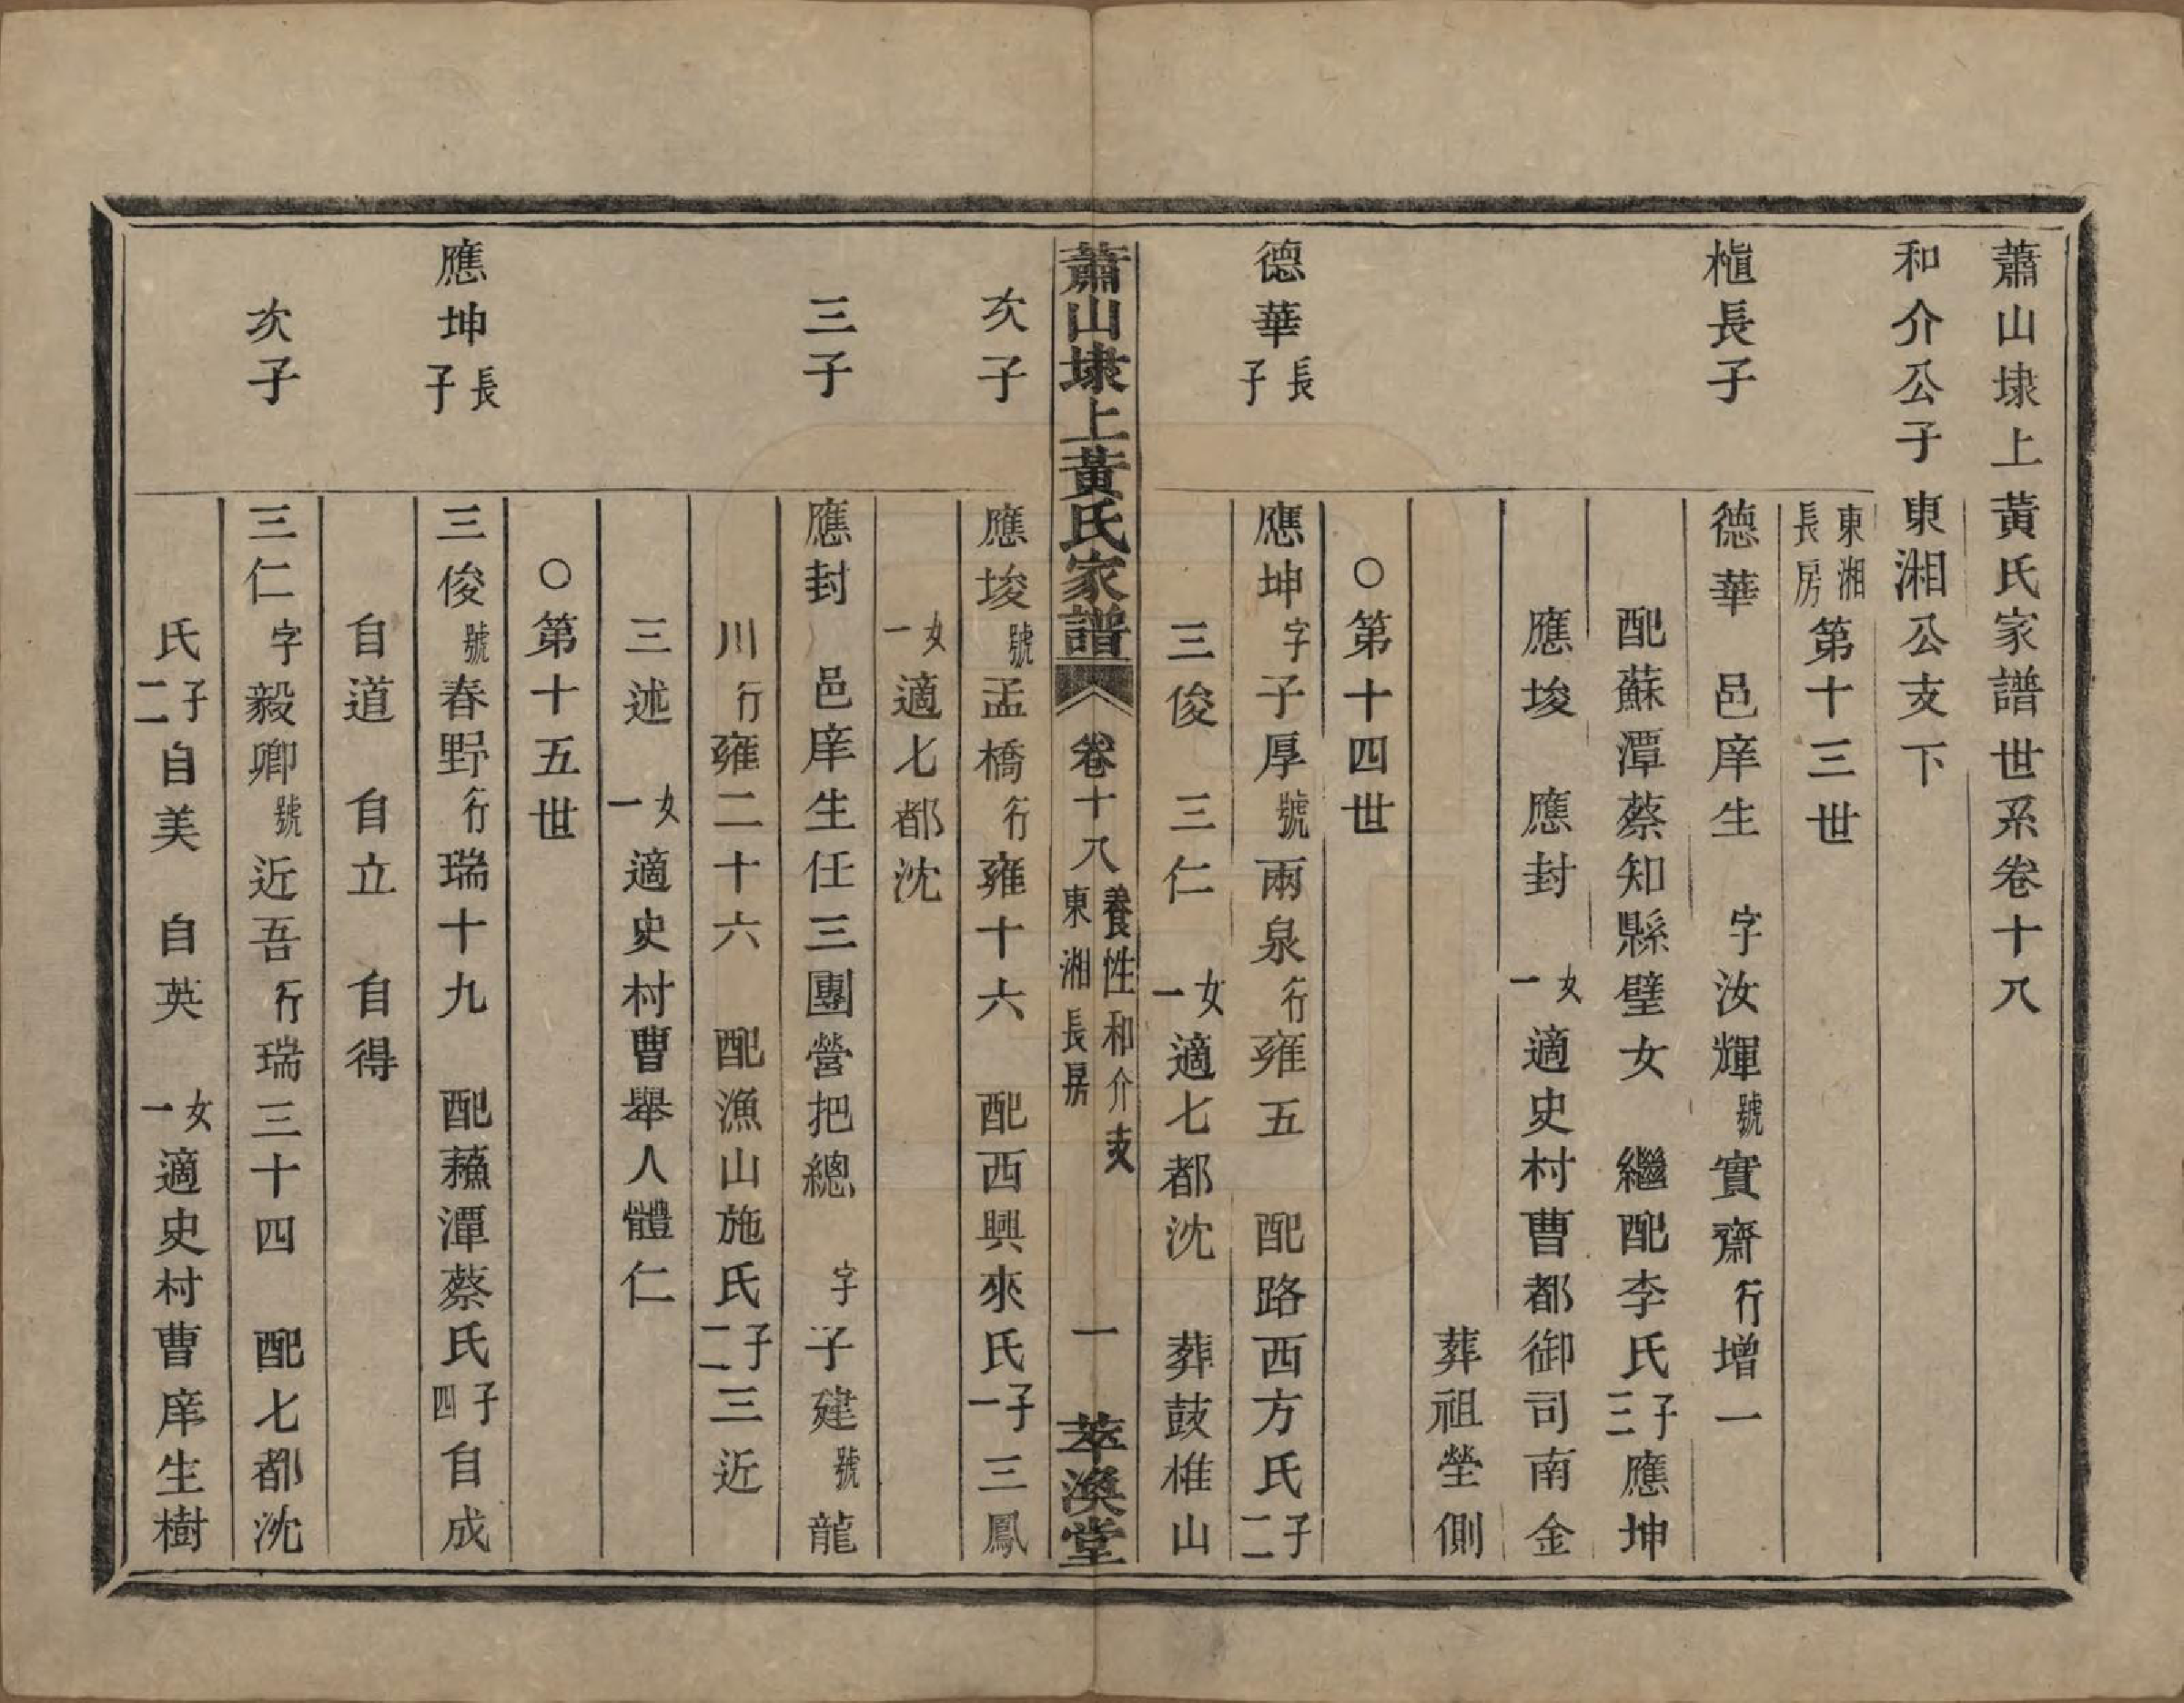 蕭山埭上黃氏家譜世系卷十八
和介公子東湘公支下
東湘長房第十三世
槓長子
德華 邑庠生 字汝輝號實齋行增一
配蘇潭蔡知縣璧女 繼配李氏子三應坤
應埈 應封 女一適史村曹都御司南金
葬祖塋側
○第十四世
德華長子
應坤字子厚號兩泉行雍五 配路西方氏子二
三俊 三仁 女一適七都沈 葬鼓椎山
蕭山埭上黃氏家譜 卷十八 養性和介支 東湘長房 一 萃渙堂
次子
應埈號孟橋行雍十六 配西興來氏子一三鳳
女一適七都沈
三子
應封 邑庠生任三團營把總 字子建號龍
川行雍二十六 配漁山施氏子二三近
三述 女一適史村曹舉人體仁
○第十五世
應坤長子
三俊號春野行瑞十九 配蘓潭蔡氏子四自成
自道 自立 自得
次子
三仁字毅卿號近吾行瑞三十四 配七都沈
氏子二自美 自英 女一適史村曹庠生樹